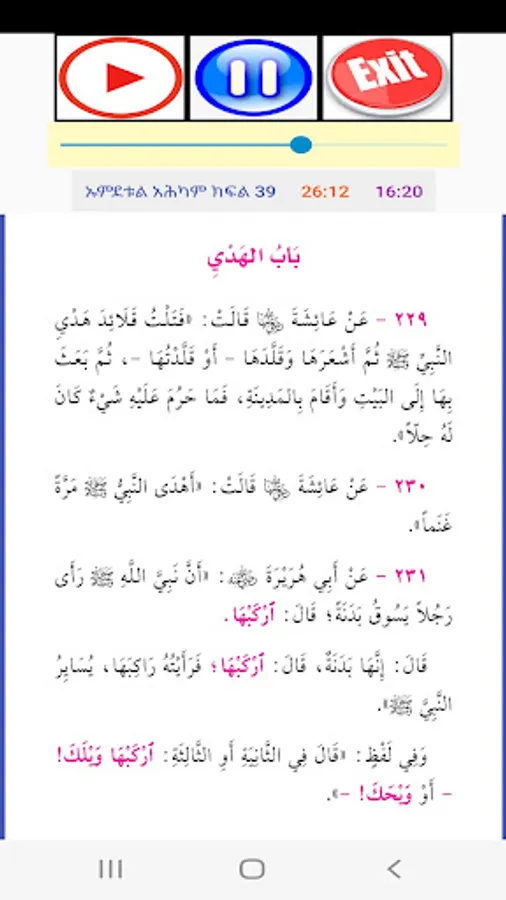 Exit
ኡምደቱል አሕካም ክፍል 39 26:12 16:20
بَابُ الهَدْيِ
٢٢٩ - عَنْ عَائِشَةَ ﵂ قَالَتْ: «فَتَلْتُ قَلَائِدَ هَدْيِ
النَّبِيِّ ﷺ ثُمَّ أَشْعَرَهَا وَقَلَّدَهَا - أَوْ قَلَّدْتُهَا -، ثُمَّ بَعَثَ
بِهَا إِلَى البَيْتِ وَأَقَامَ بِالمَدِينَةِ، فَمَا حَرُمَ عَلَيْهِ شَيْءٌ كَانَ
لَهُ حِلّاً».
٢٣٠ - عَنْ عَائِشَةَ ﵂ قَالَتْ: «أَهْدَى النَّبِيُّ ﷺ مَرَّةً
غَنَماً».
٢٣١ - عَنْ أَبِي هُرَيْرَةَ ﵁: «أَنَّ نَبِيَّ اللَّهِ ﷺ رَأَى
رَجُلاً يَسُوقُ بَدَنَةً؛ قَالَ: ٱرْكَبْهَا.
قَالَ: إِنَّهَا بَدَنَةٌ، قَالَ: ٱرْكَبْهَا؛ فَرَأَيْتُهُ رَاكِبَهَا، يُسَايِرُ
النَّبِيَّ ﷺ».
وَفِي لَفْظٍ: «قَالَ فِي الثَّانِيَةِ أَوِ الثَّالِثَةِ: ٱرْكَبْهَا وَيْلَكَ!
- أَوْ وَيْحَكَ! -».